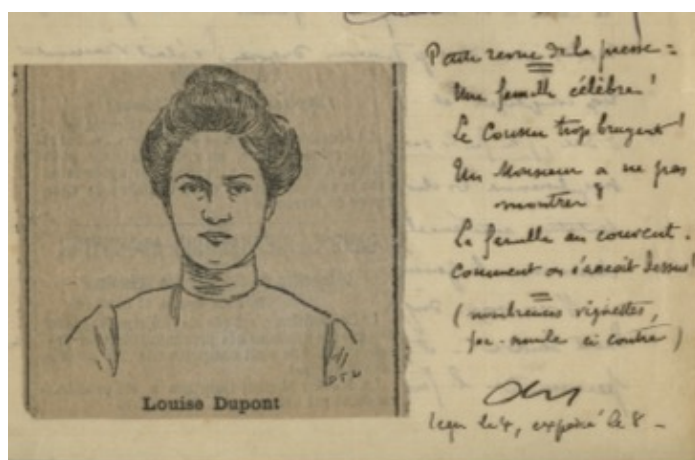 Louise Dupont
Petite revue de la presse =
Une famille célèbre !
Le Cousin trop bruyant !
Un Monsieur a ne pas
montrer !
La famille au couvent.
Comment on s'assoit dessus !
(nombreuses vignettes,
fac-simile ci contre)
le 4, expédié le 8 -